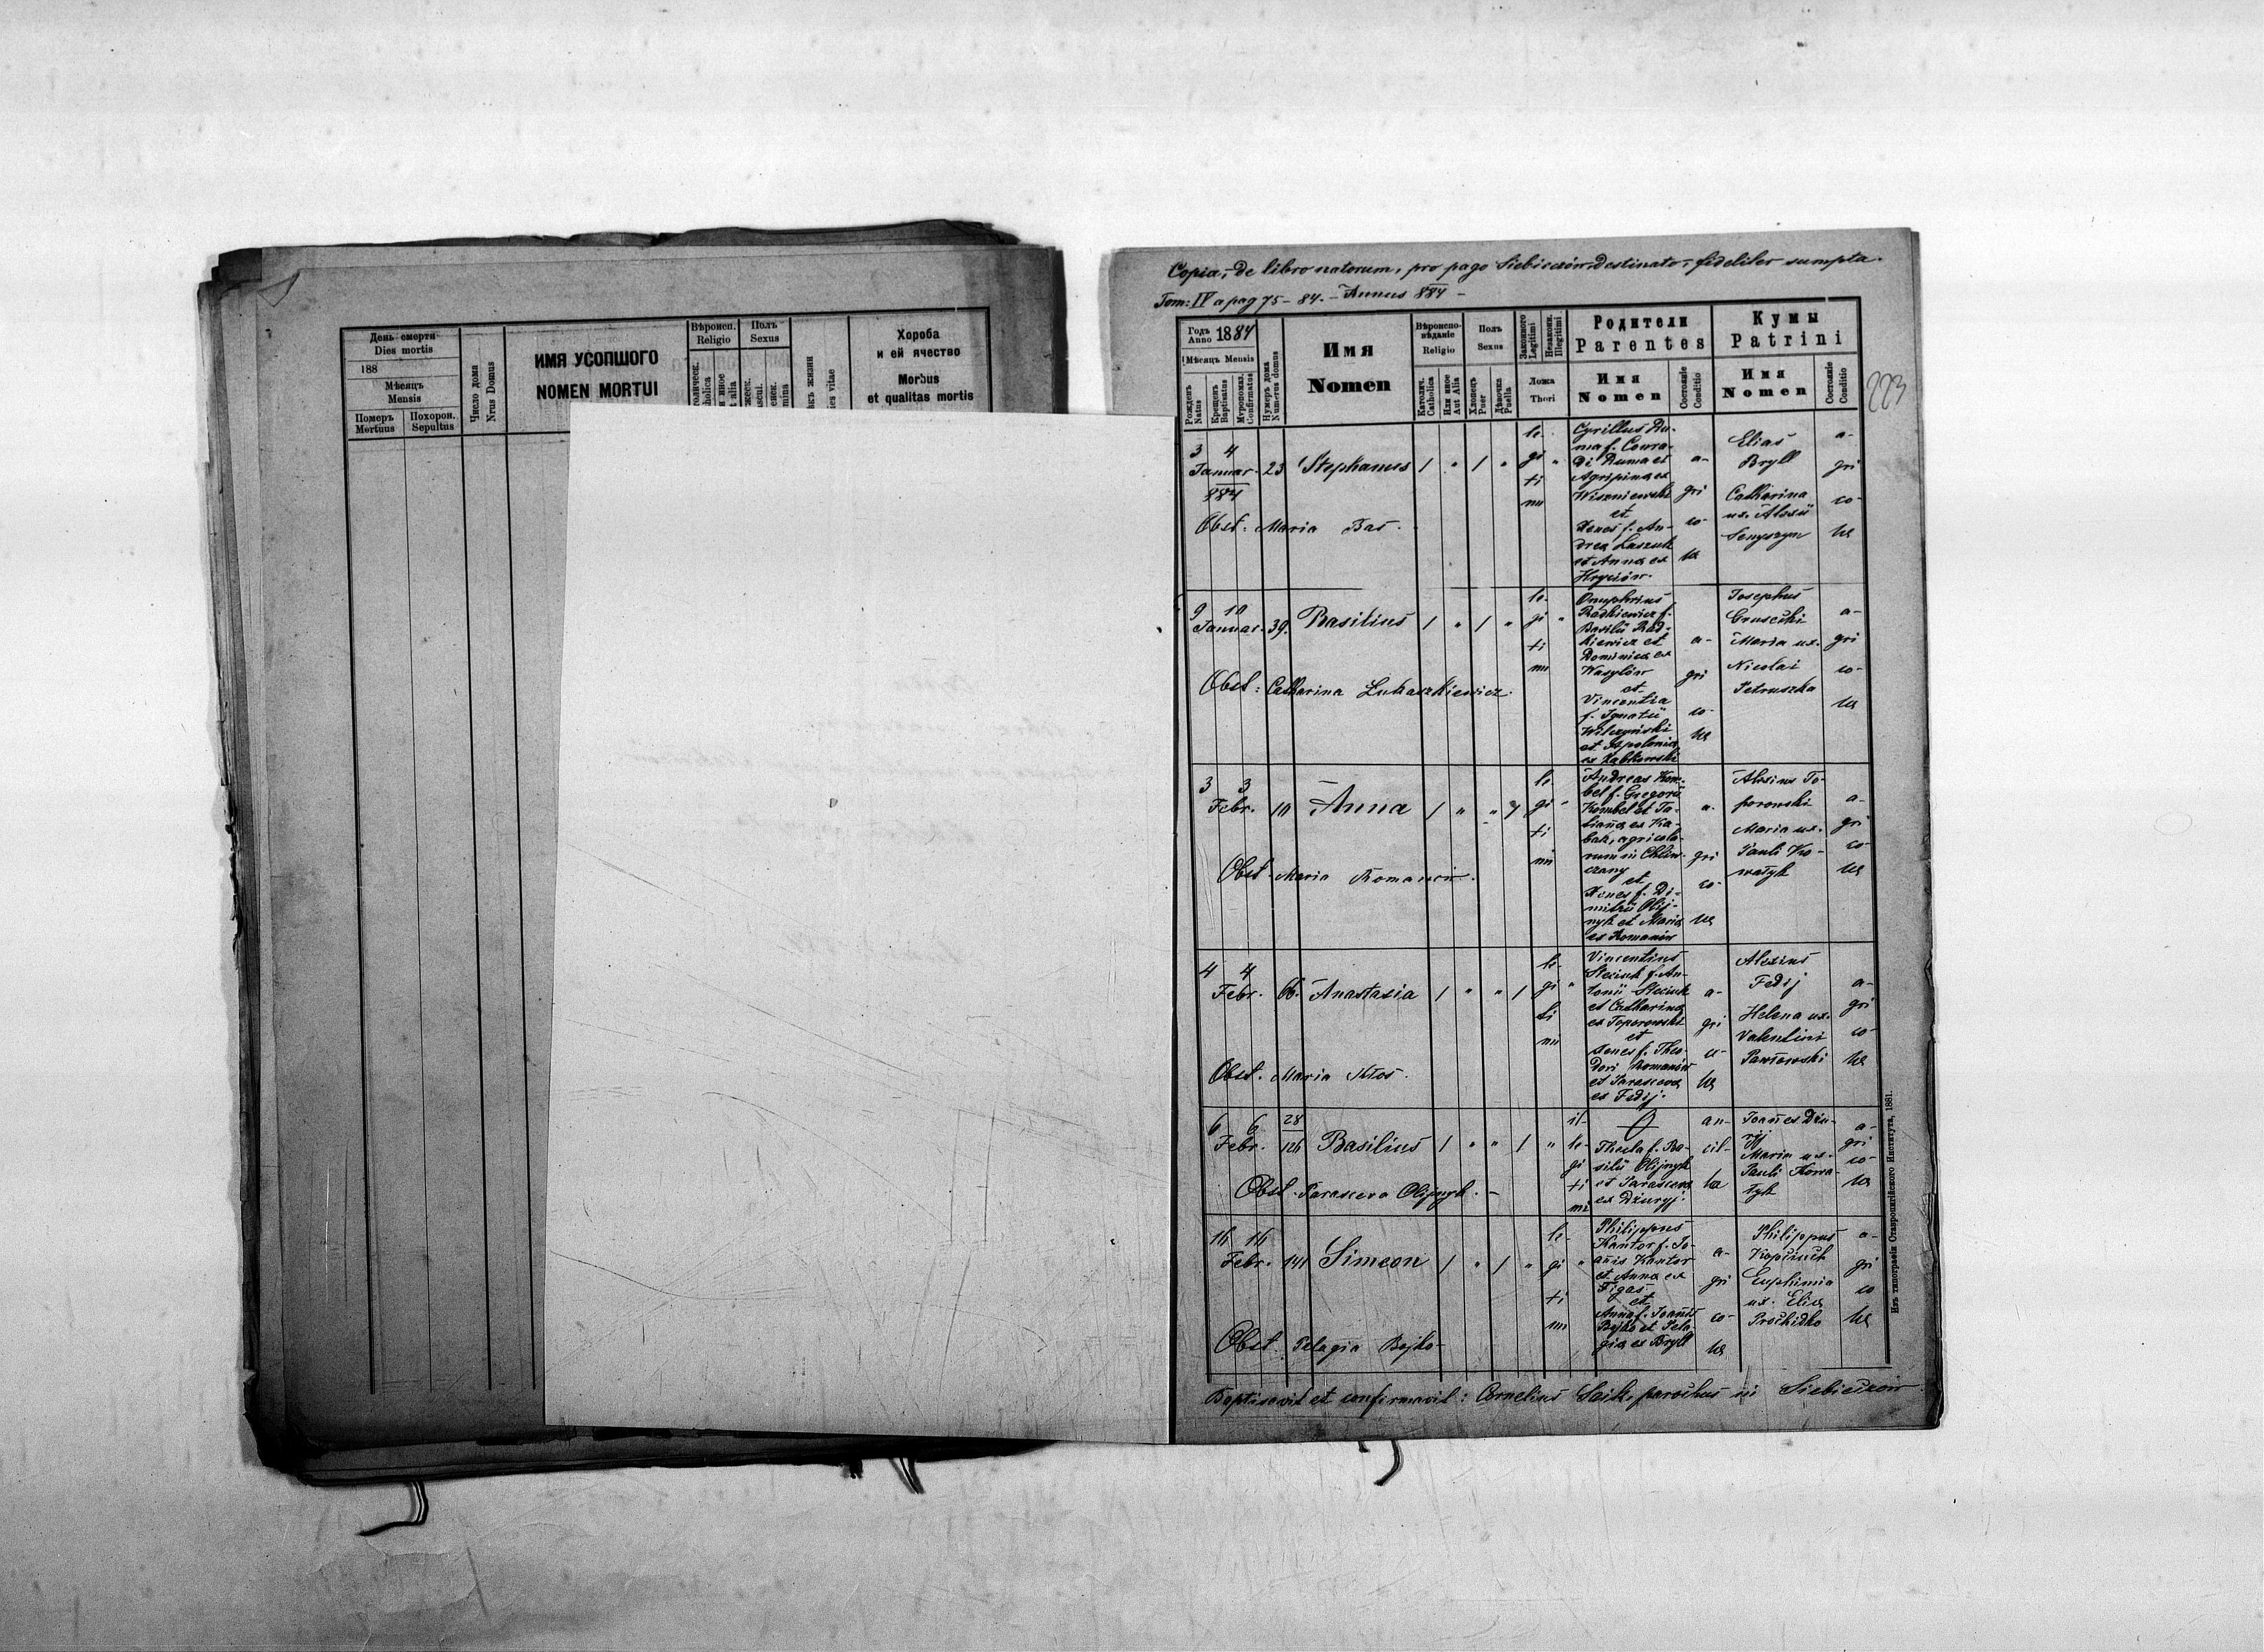 День смерти
Dies mortis
188
Мѣсяць
Mensis
Померъ
Mortuus
Похорон.
Sepultus
Число дома
Nrus Domus
ИМЯ УСОПШОГО
NOMEN MORTUI
Вѣроисп.
Religio
Полъ
Sexus
Хороба
и ей ячество
Morbus
et qualitas mortis
Copia, de libro natorum, pro pago Siebieczów destinato, fideliter sumpta.
Tom: IV a pag 75 - 84. - Annus 884 -
223
Годъ
Anno 1884
Мѣсяць Mensis
Рожденъ
Natus
Крещенъ
Baptisatus
Мѵропомаз.
Confirmatus
Нумеръ дома
Numerus domus
Имя
Nomen
Вѣроиспо-
вѣданіе
Religio
Католич.
Catholica
Или иное
Aut Alia
Полъ
Sexus
Хлопецъ
Puer
Дѣвочка
Puella
Законного
Legitimi
Незаконн.
Illegitimi
Ложа
Thori
Родители
Parentes
Имя
Nomen
Состояніе
Conditio
Кумы
Patrini
Имя
Nomen
Состояніе
Conditio
3 4
Januar.
884
23
Stephanus
1 " 1 "
le-
gi "
ti
mi
Cyrillus Du-
ma f. Conra-
di Duma et
Agripina ex
Wiszniewski
et
Xenes f. An-
drea Laszuk
et Anna ex
Hryciów.
a-
gri
co-
la
Elias
Bryll
Catharina
ux. Alexii
Senyszyn
a-
gri
co-
la
Obst: Maria Bas.
9 10
Januar.
39.
Basilius
1 " 1 "
le-
gi "
ti
mi
Onuphrius
Radkiewicz f.
Basilii Rad-
kiewicz et
Dominica ex
Wasylów
et
Vincentia
f. Ignatii
Wilczyński
et Apolonia
ex Ząbkowski
a-
gri
co-
la
Josephus
Gruscki
Maria ux.
Nicolai
Petruszka
a-
gri
co-
la
Obst: Catharina Lukaszkiewicz.
3 3
Febr.
10
Anna
1 " " 1
le-
gi "
ti
mi
Andreas Kom-
bel f. Gregorii
Kombel et Ta-
tianna ex Ka-
bak, agricola-
rum in Chliw-
czany
et
Xenes f. Di-
mitrii Olij-
nyk et Maria
ex Romanów
a-
gri
co-
la
Alexius To-
porowski
Maria ux.
Pauli Ko-
watyk
a-
gri
co-
la
Obst. Maria Romanów.
4 4
Febr.
66.
Anastasia
1 " " 1
le-
gi "
ti
mi
Vincentius
Steciuk f. An-
tonii Steciuk
et Catharina
ex Toporowski
et
Xenes f. Theo-
dori Romanów
et Parasceva
ex Fedij.
a-
gri
co-
la
Alexius
Fedij
Helena ux.
Valentini
Pawłowski
a-
gri
co-
la
Obst. Maria Kłos.
6 6
Febr.
28
126
Basilius
1 " " 1
" il-
le-
gi
ti
mi
Thecla f. Ba-
silii Olijnyk
et Parasceva
ex Dżuryj.
an-
cil-
la
Joannes Dżu-
ryj
Maria ux.
Pauli Kowa-
tyk
a-
gri
co-
la
Obst. Parasceva Olijnyk. -
16 16
Febr.
141
Simeon
1 " 1 "
le-
gi "
ti
mi
Philippus
Kantor f. Jo-
anis Kantor
et Anna ex
Figas
et
Anna f. Joannis
Bojko et Pela-
gia ex Bryll
a-
gri
co-
la
Philippus
Kopciuch
Euphimia
ux. Elia
Prochidko
a-
gri
co
la
Obst. Pelagia Bojko-
Baptisavit et confirmavit: Cornelius Saik, parochus in Siebieczów.
Изъ типографіи Ставропигійского Института, 1881.